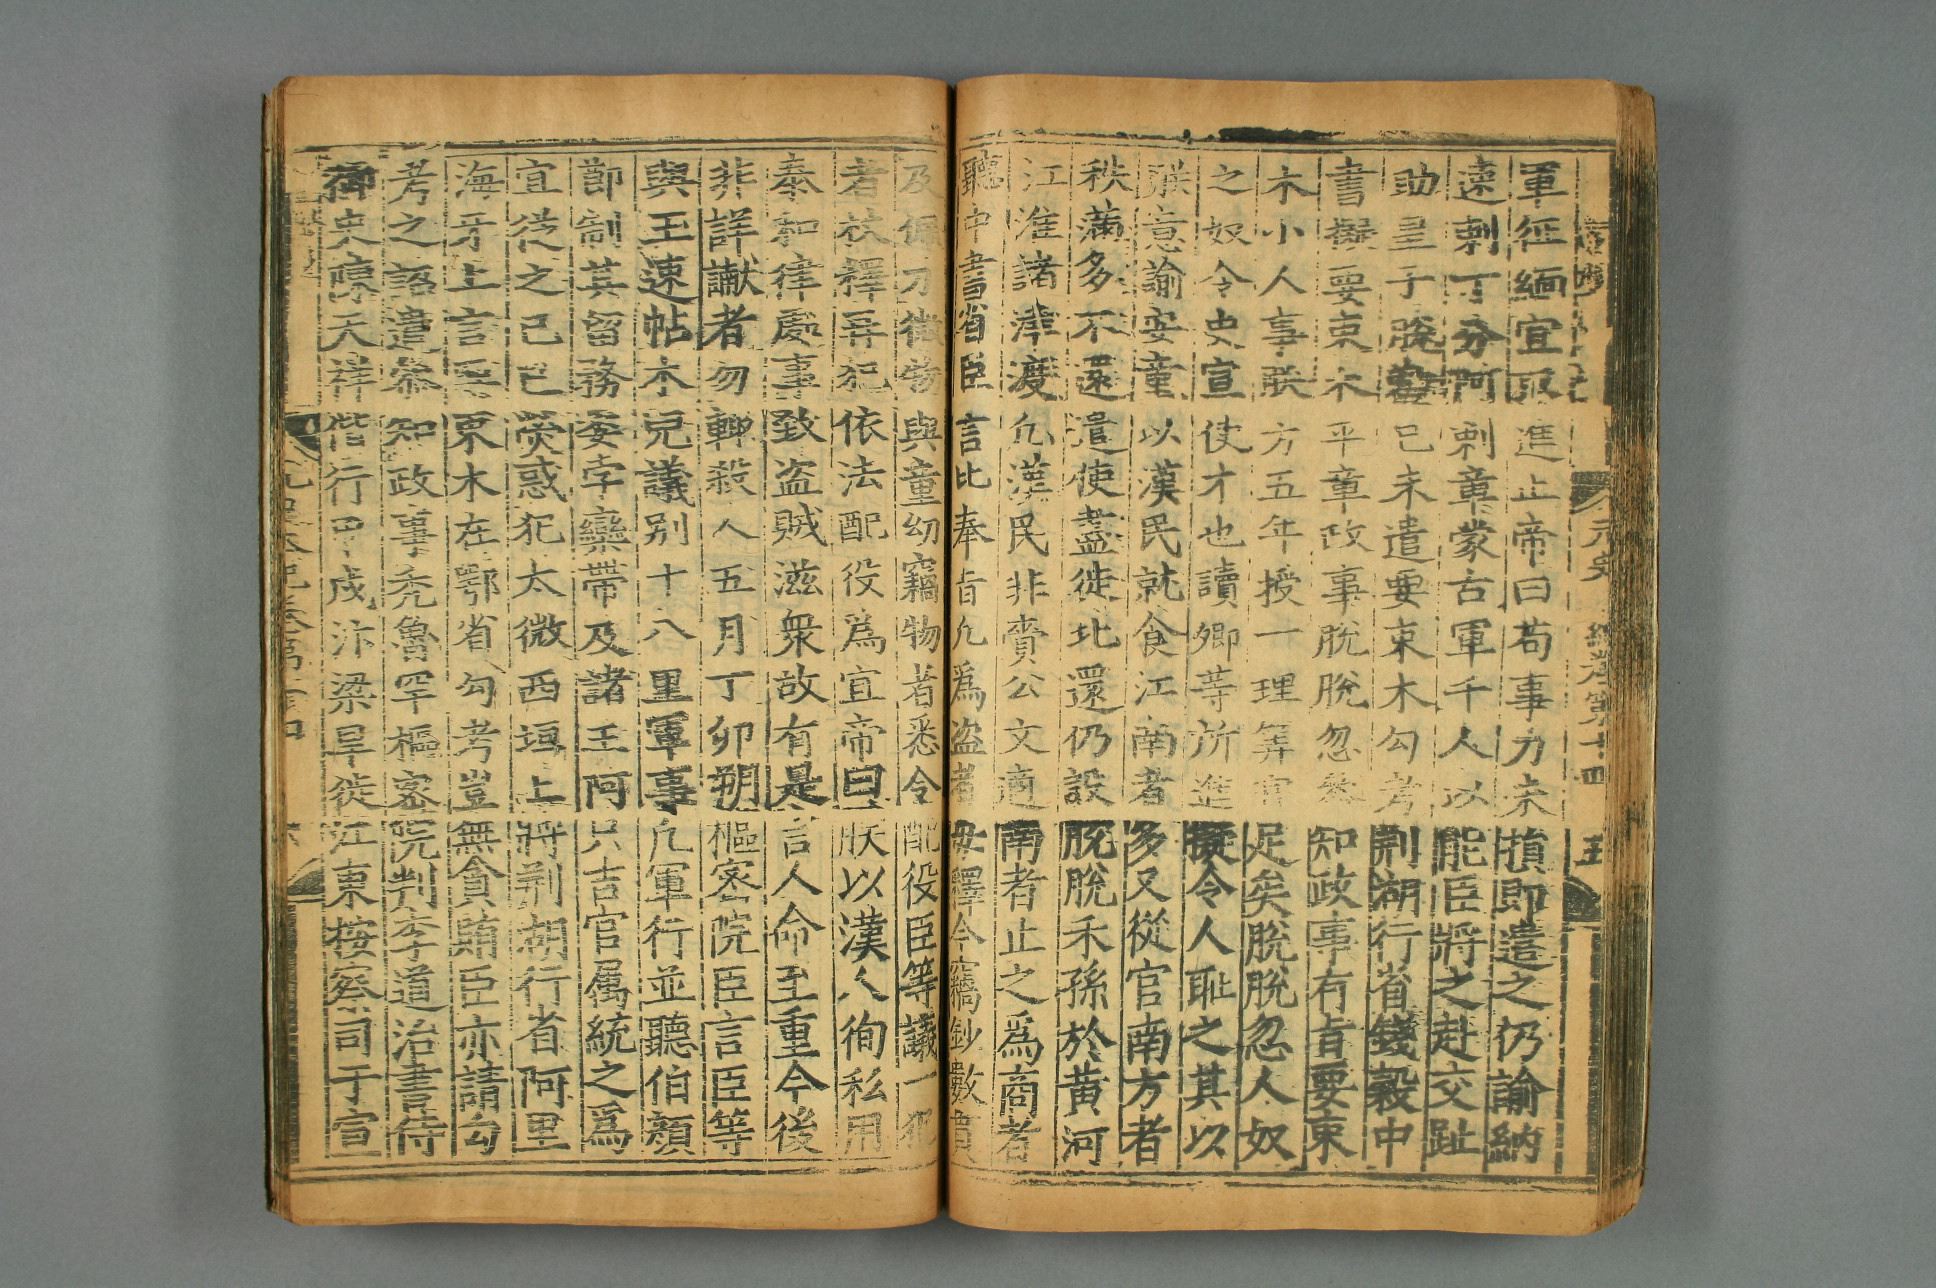 元史 卷第十四 五
軍征緬宜取進止帝曰苟事力未損即遣之仍諭納
速剌丁分阿剌章蒙古軍千人以能臣將之赴交趾
助皇子脫歡己未遣要束木勾考荆湖行省錢穀中
書擬要束木平章政事脫脫忽參知政事有旨要束
木小人事朕方五年授一理筭官足矣脫脫忽人奴
之奴令史宣使才也讀卿等所進擬令人恥之其以
朕意諭安童以漢民就食江南者多又從官南方者
秩滿多不還遣使盡徙北還仍設脫脫禾孫於黃河
江淮諸津渡凡漢民非賫公文適南者止之爲商者
聽中書省臣言比奉旨凡爲盜者毋釋今竊鈔數貫
及佩刀微物與童幼竊物者悉令配役臣等議一犯
者杖釋再犯依法配役爲宜帝曰朕以漢人徇私用
泰和律處事致盜賊滋衆故有是言人命至重今後
非詳讞者勿輒殺人五月丁卯朔樞密院臣言臣等
與玉速帖木兒議别十八里軍事凡軍行並聽伯顔
節制其留務委孛欒帶及諸王阿只吉官属統之爲
宜從之己巳熒惑犯太微西垣上將荆胡行省阿里
海牙上言要束木在鄂省勾考豈無貪賄臣亦請勾
考之詔遣參知政事秃魯罕樞密院判李道治書侍
御史陳天祥偕行甲戌汴梁旱徙江東按察司于宣